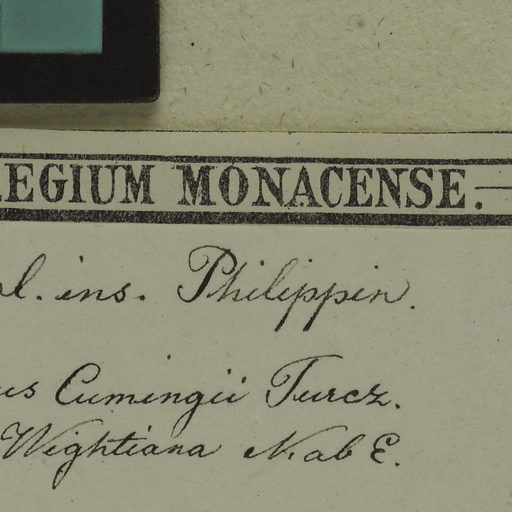 REGIUM MONACENSE.
pl. ins. Philippin.
us Cumingii Turcz.
Wightiana N. ab E.